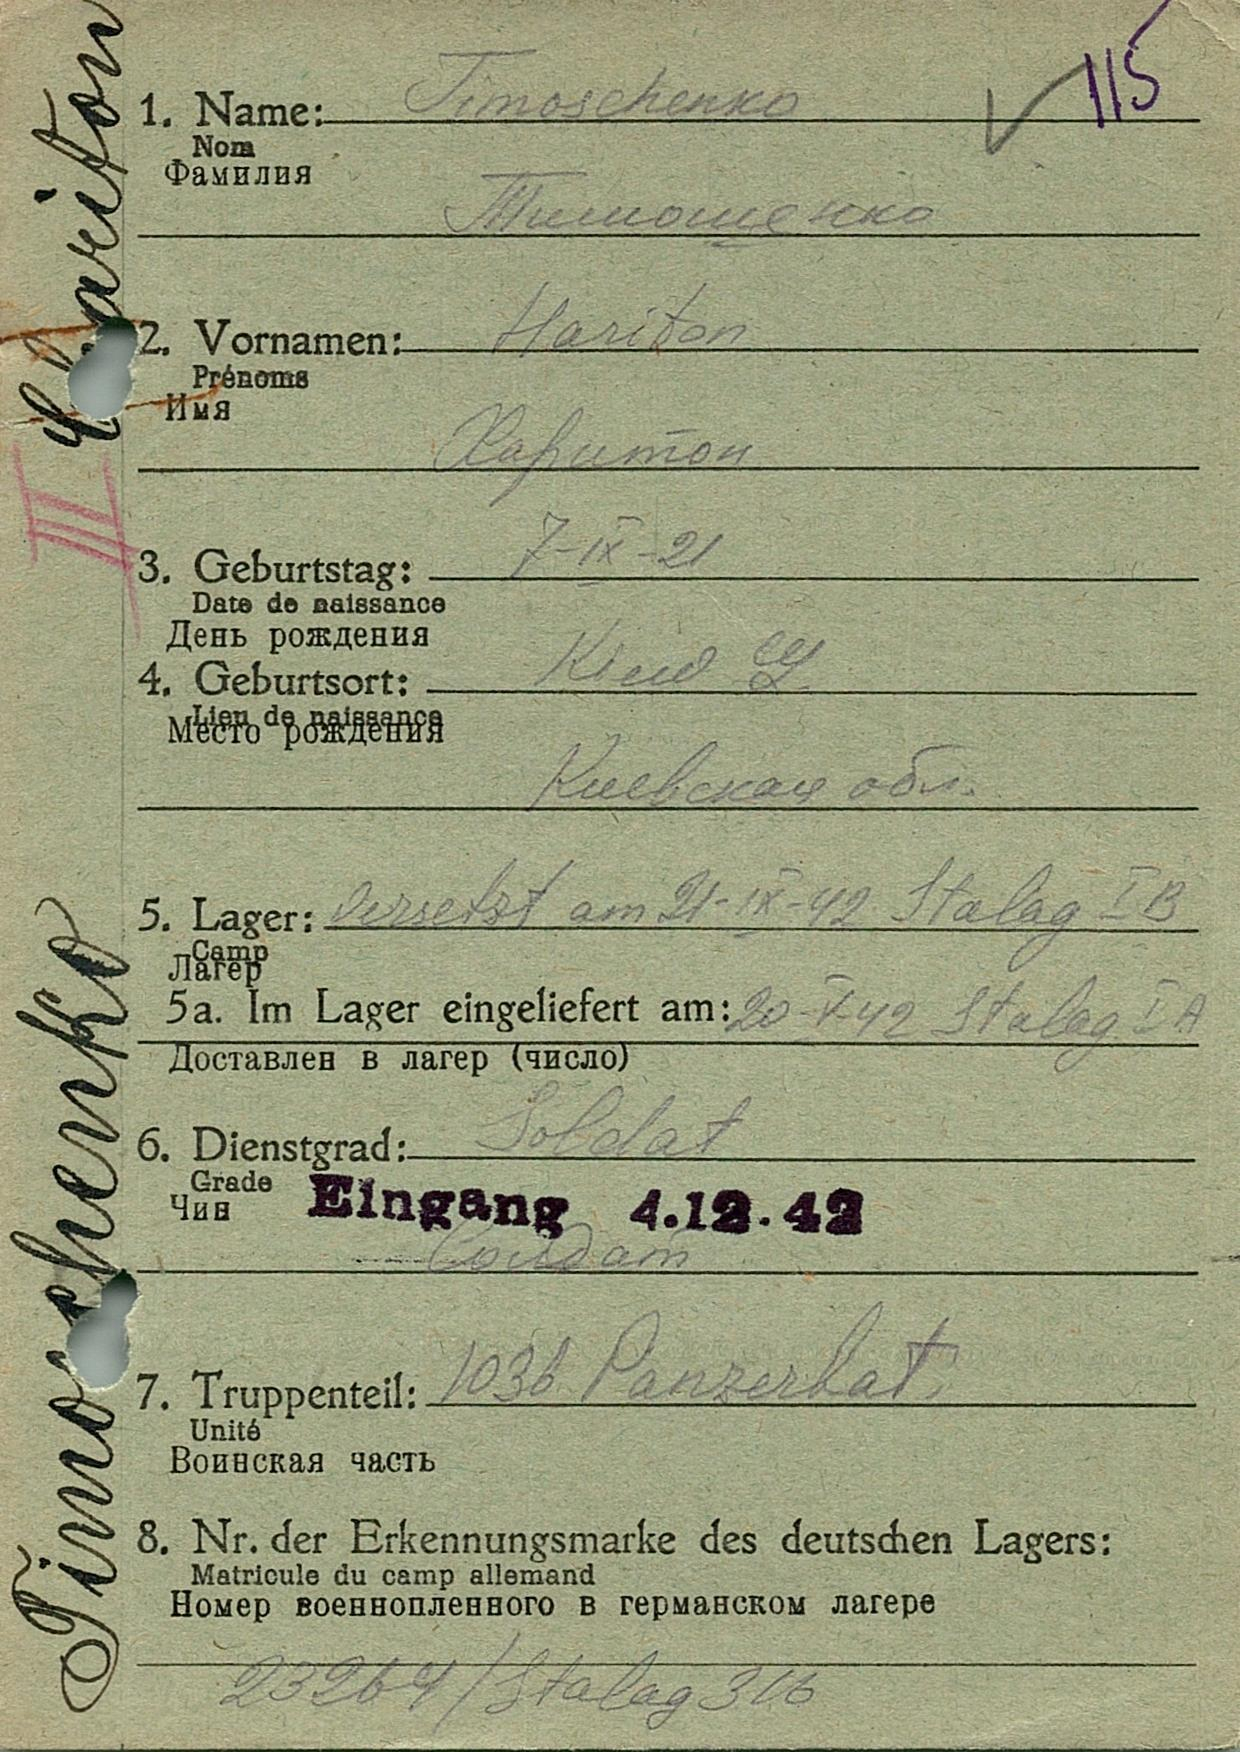 115
1. Name: Timoschenko
Nom
Фамилия
Тимошенко
2. Vornamen: Hariton
Prénoms
Имя
Харитон
3. Geburtstag: 7-IX-21
Date de naissance
День рождения
4. Geburtsort: Kiew
Lieu de naissance
Место рождения
Киевская обл.
5. Lager: versetzt am 21-IX-42 Stalag I B
Camp
Лагер
5a. Im Lager eingeliefert am: 20-V-42 Stalag I A
Доставлен в лагер (число)
6. Dienstgrad: Soldat
Grade
Чин
Eingang 4.12.42
Солдат
7. Truppenteil: 103b Panzerbat.
Unité
Воинская часть
8. Nr. der Erkennungsmarke des deutschen Lagers:
Matricule du camp allemand
Номер военнопленного в германском лагере
23264/Stalag 316
Timoschenko Chariton
III